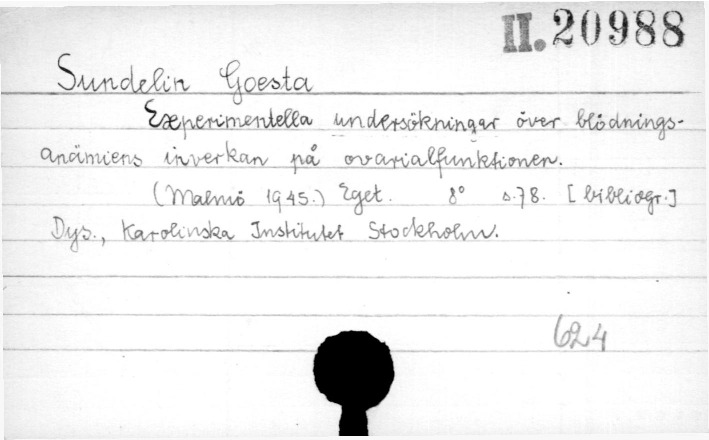 II. 20988
Sundelin Goesta
Experimentella undersökningar över blödnings-
anämiens inverkan på ovarialfunktionen.
(Malmö 1945.) Eget. 8° s. 78. [bibliogr.]
Dys., Karolinska Institutet Stockholm.
624